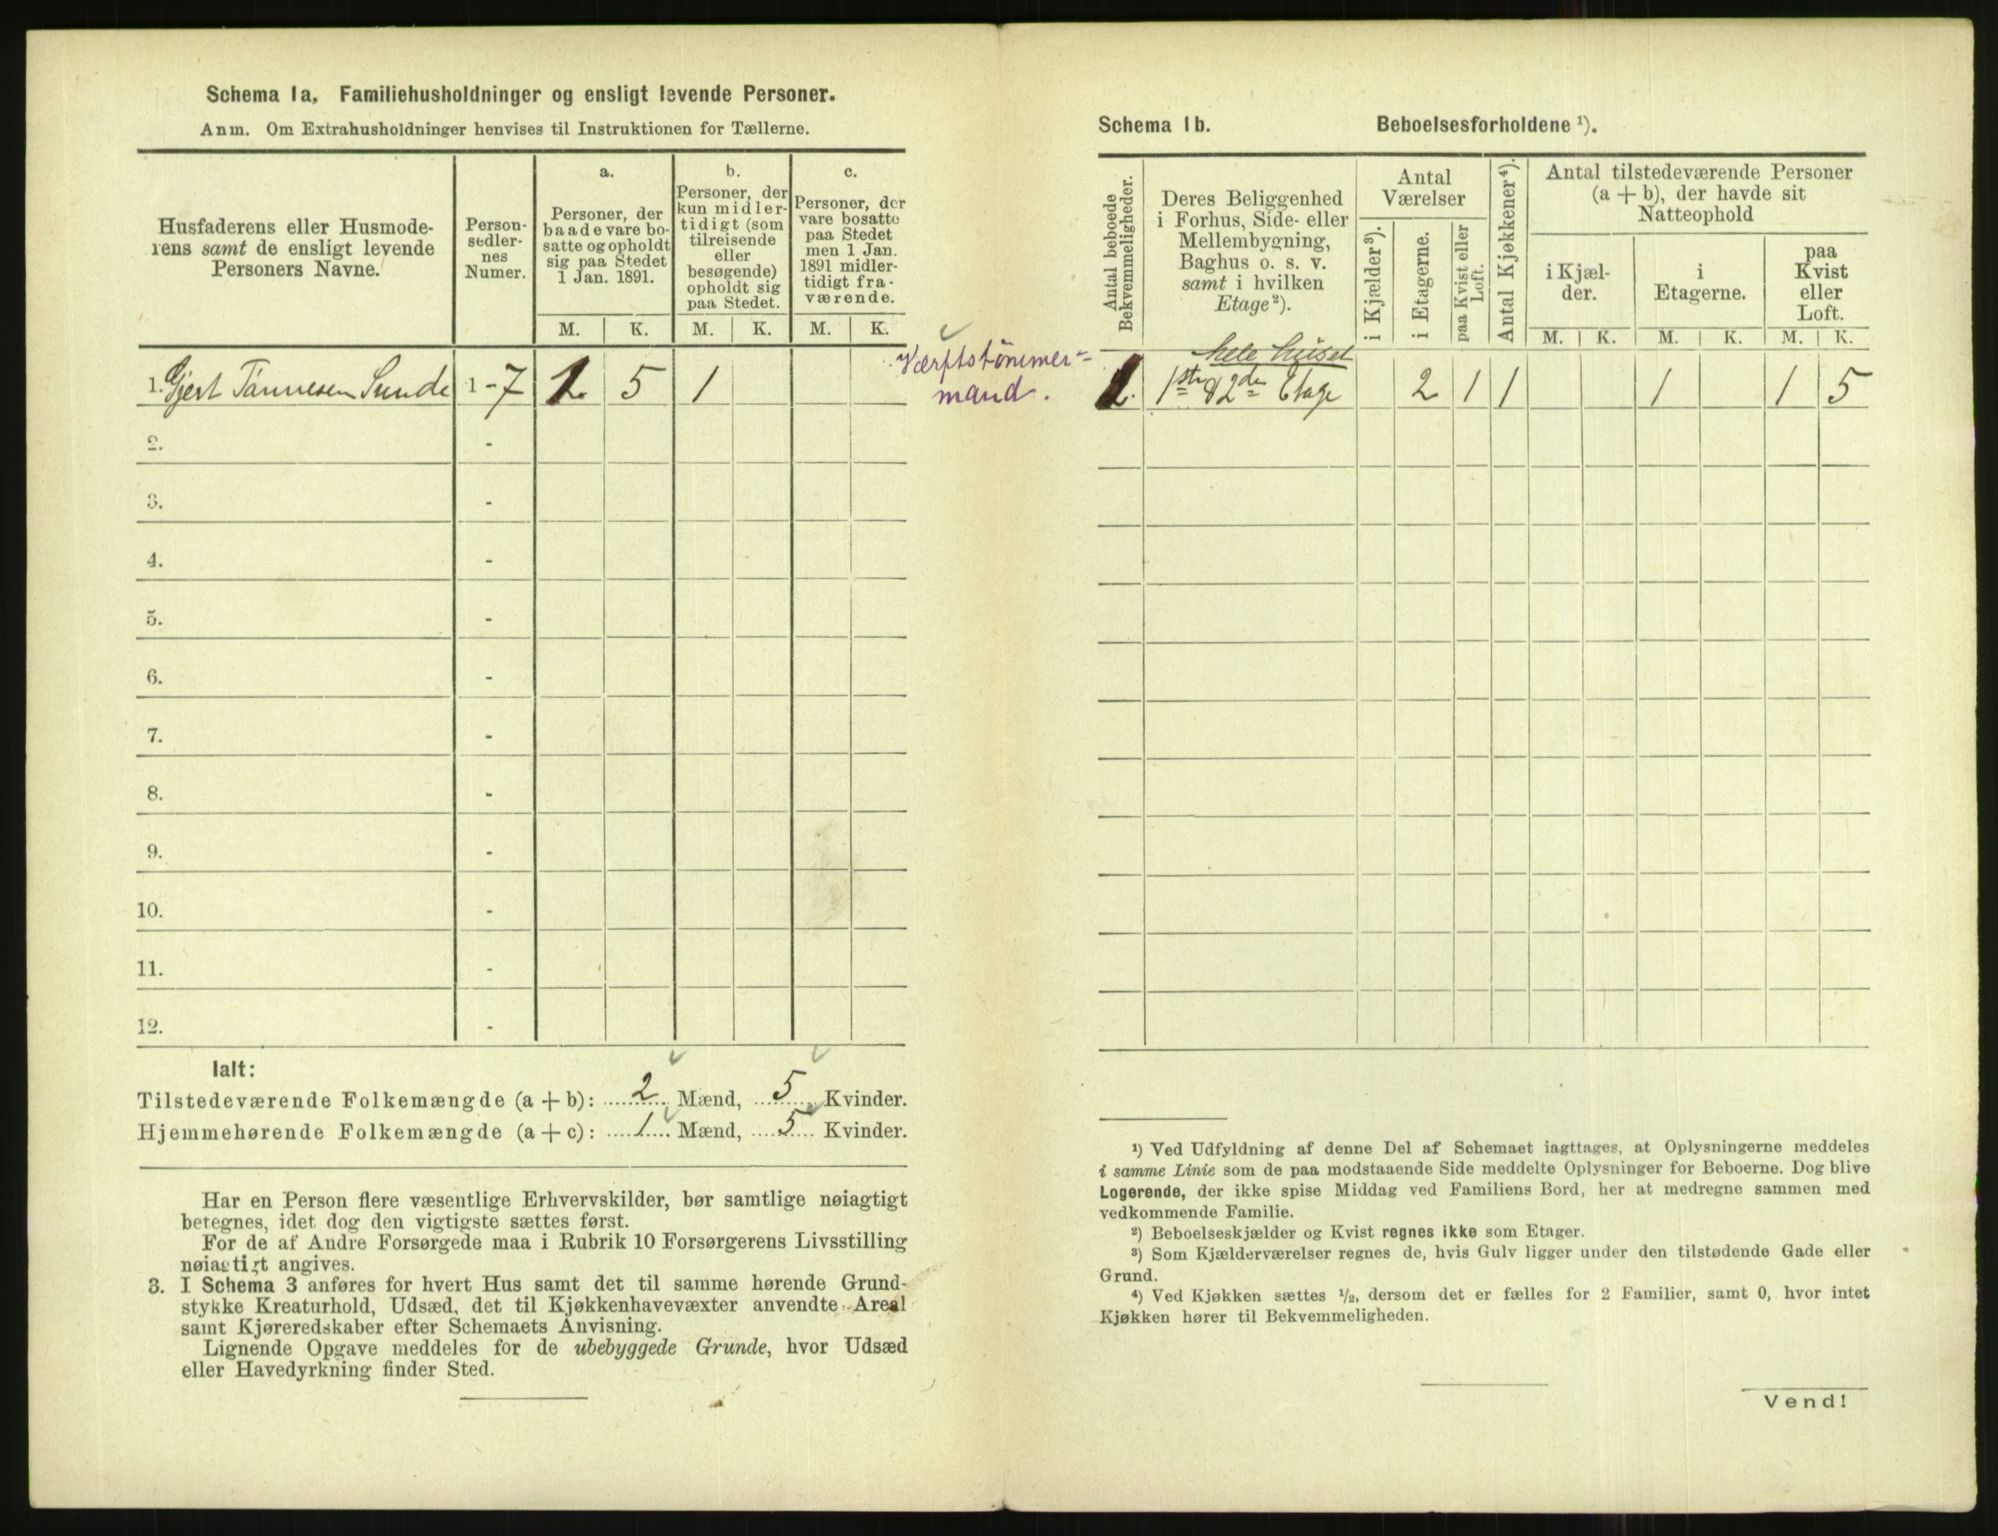 Schema 1a. Familiehusholdninger og ensligt levende Personer.
Anm. Om Extrahusholdninger henvises til Instruktionen for Tællerne.
Husfaderens eller Husmode-
rens samt de ensligt levende
Personers Navne.
Person-
sedler-
nes
Numer.
a.
Personer, der
baade vare bo-
satte og opholdt
sig paa Stedet
1 Jan. 1891.
b.
Personer, der
kun midler-
tidigt (som
tilreisende
eller
besøgende)
opholdt sig
paa Stedet.
c.
Personer, der
vare bosatte
paa Stedet
men 1 Jan.
1891 midler-
tidigt fra-
værende.
M. K. M. K. M. K.
1. Gjert Tønnesen Sunde 1 - 7 1 5 1
Værftstømmer-
mand.
2. -
3. -
4. -
5. -
6. -
7. -
8. -
9. -
10. -
11. -
12. -
Ialt:
Tilstedeværende Folkemængde (a + b): 2 Mænd, 5 Kvinder.
Hjemmehørende Folkemængde (a + c): 1 Mænd, 5 Kvinder.
Har en Person flere væsentlige Erhvervskilder, bør samtlige nøiagtigt
betegnes, idet dog den vigtigste sættes først.
For de af Andre Forsørgede maa i Rubrik 10 Forsørgerens Livsstilling
nøiagtigt angives.
3. I Schema 3 anføres for hvert Hus samt det til samme hørende Grund-
stykke Kreaturhold, Udsæd, det til Kjøkkenhavevæxter anvendte Areal
samt Kjøreredskaber efter Schemaets Anvisning.
Lignende Opgave meddeles for de ubebyggede Grunde, hvor Udsæd
eller Havedyrkning finder Sted.
Schema 1b. Beboelsesforholdene ¹).
Antal beboede
Bekvemmeligheder.
Deres Beliggenhed
i Forhus, Side- eller
Mellembygning,
Baghus o. s. v.
samt i hvilken
Etage ²).
Antal
Værelser
i Kjælder ³).
i Etagerne.
paa Kvist eller
Loft.
Antal Kjøkkener ⁴).
Antal tilstedeværende Personer
(a + b), der havde sit
Natteophold
i Kjæl-
der.
i
Etagerne.
paa
Kvist
eller
Loft.
M. K. M. K. M. K.
hele huset
1. 1ste & 2den Etage 2 1 1 1 1 5
¹) Ved Udfyldning af denne Del af Schemaet iagttages, at Oplysningerne meddeles
i samme Linie som de paa modstaaende Side meddelte Oplysninger for Beboerne. Dog blive
Logerende, der ikke spise Middag ved Familiens Bord, her at medregne sammen med
vedkommende Familie.
²) Beboelseskjælder og Kvist regnes ikke som Etager.
³) Som Kjælderværelser regnes de, hvis Gulv ligger under den tilstødende Gade eller
Grund.
⁴) Ved Kjøkken sættes ½, dersom det er fælles for 2 Familier, samt 0, hvor intet
Kjøkken hører til Bekvemmeligheden.
Vend!